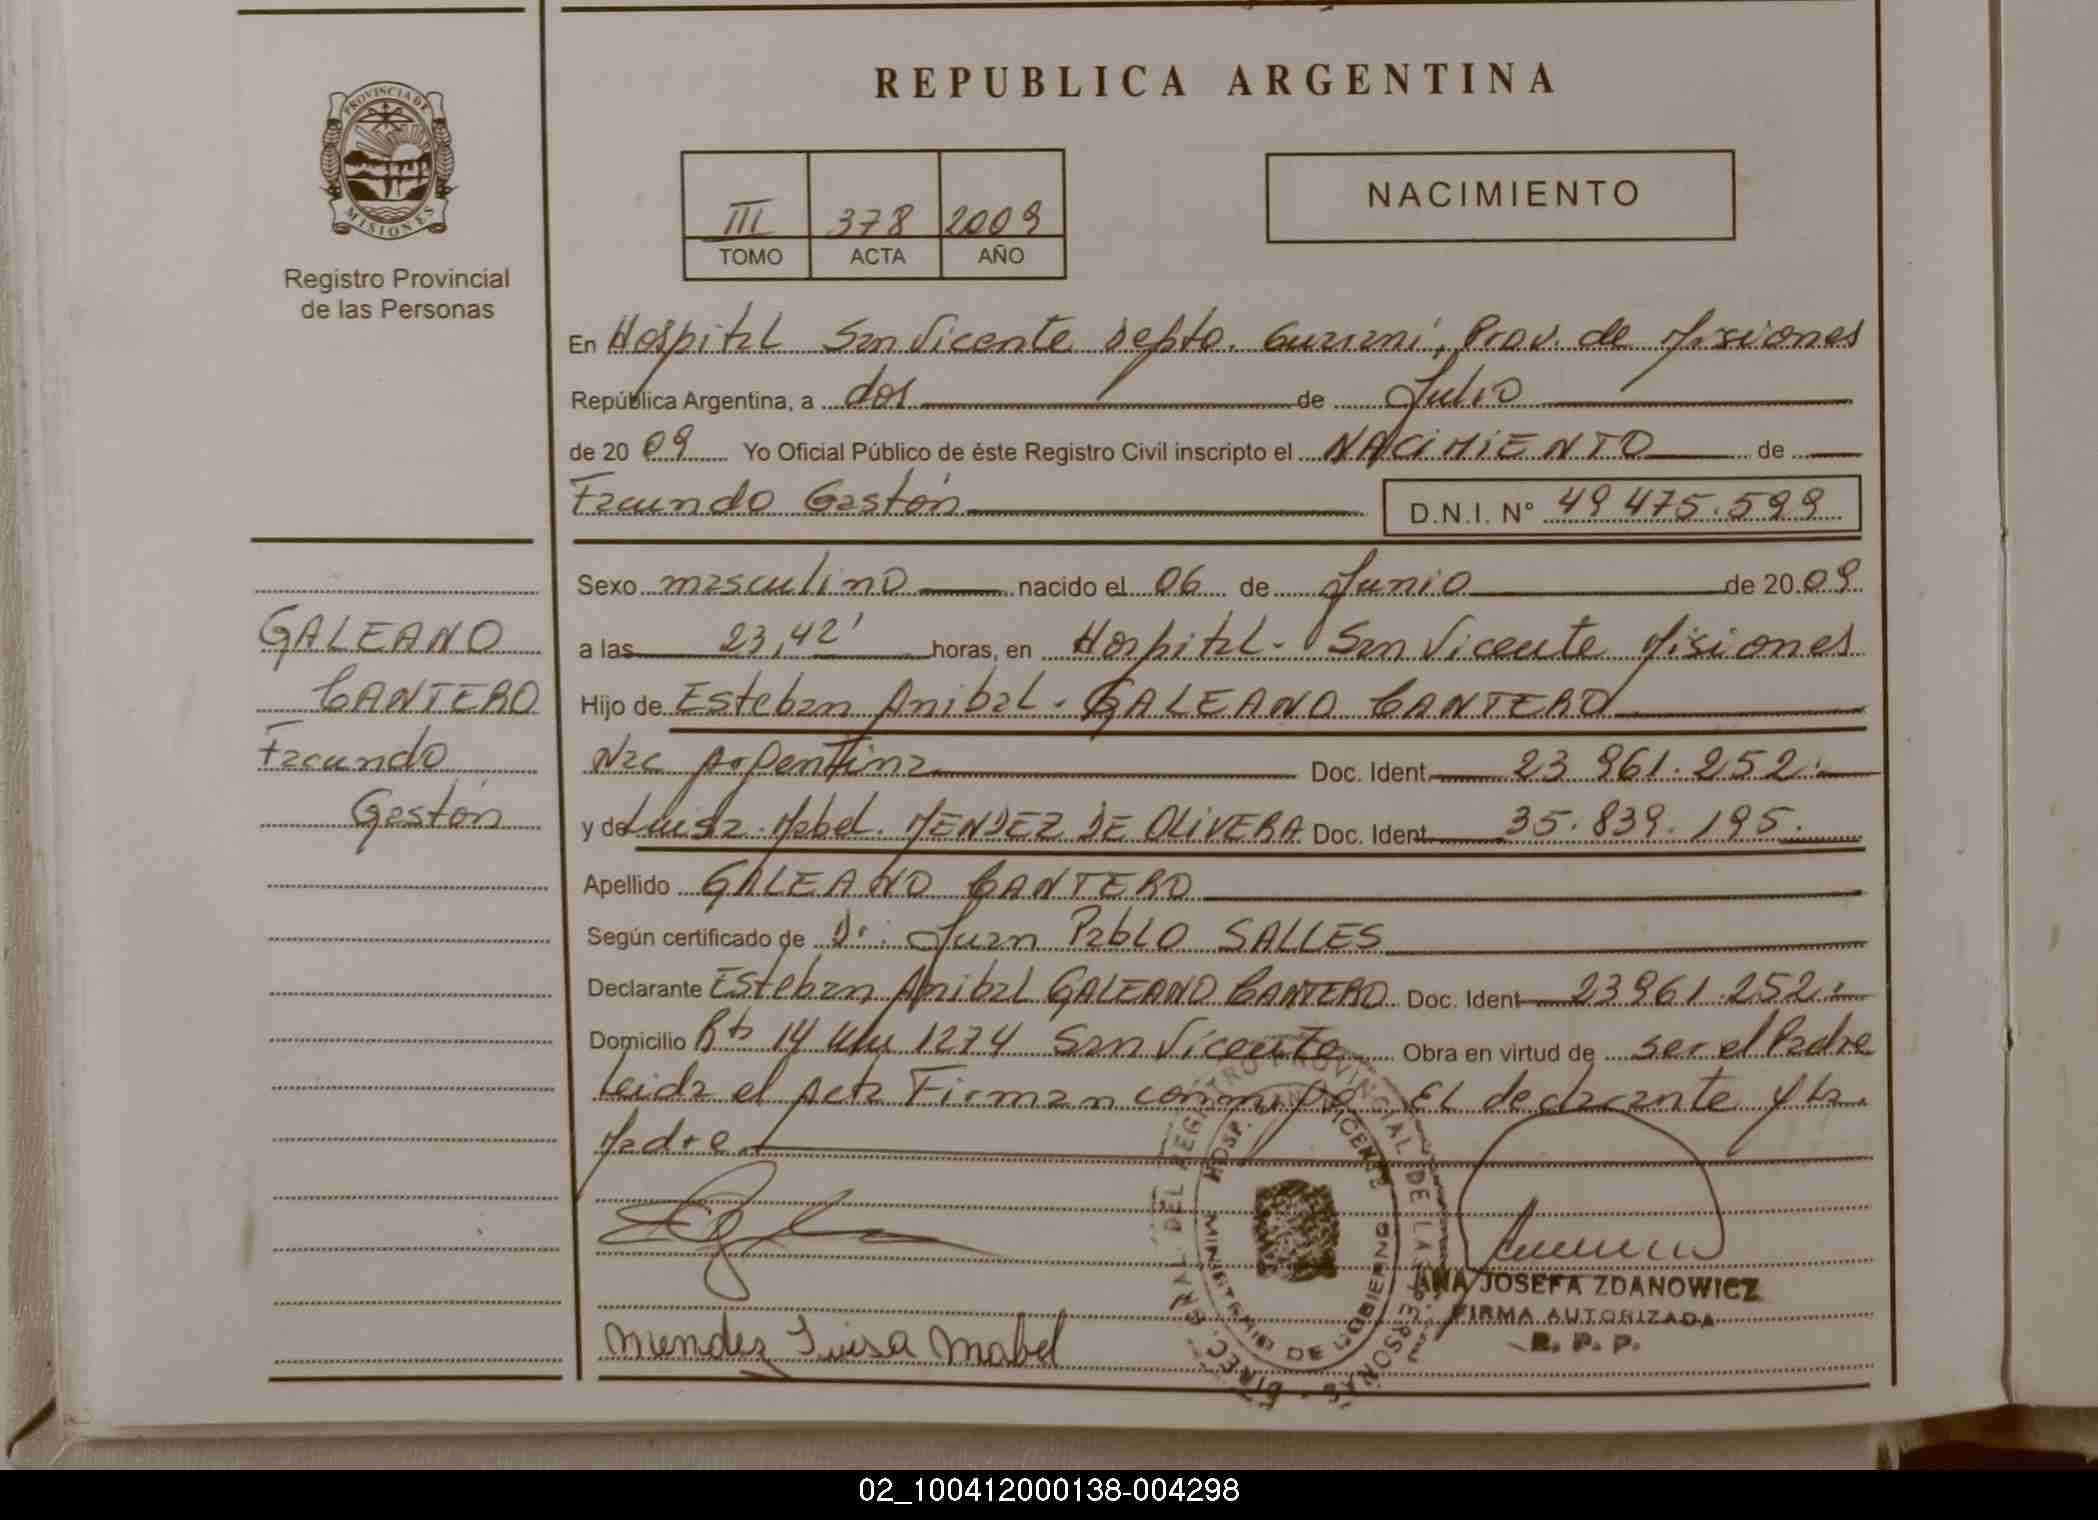 REPUBLICA ARGENTINA
PROVINCIA DE
MISIONES
Registro Provincial
de las Personas
III 378 2009
TOMO ACTA AÑO
NACIMIENTO
En Hospital San Vicente Depto. Guaraní, Prov. de Misiones
República Argentina, a dos de Julio
de 2009 Yo Oficial Público de éste Registro Civil inscripto el NACIMIENTO de
Facundo Gastón D.N.I. N° 49 475.599
Sexo masculino nacido el 06 de Junio de 2009
a las 23,42' horas, en Hospital - San Vicente Misiones
Hijo de Esteban Anibal - GALEANO CANTERO
Nac Argentina Doc. Ident 23 961.252.
y de Luisa Mabel. MENDEZ DE OLIVERA Doc. Ident 35.839.195.
Apellido GALEANO CANTERO
Según certificado de Dr. Juan Pablo SALLES
Declarante Esteban Anibal GALEANO CANTERO Doc. Ident 23961.252.
Domicilio Rta 14 Km 1274 San Vicente Obra en virtud de ser el Padre
Leida el Acta Firman conmigo El declarante y La
Madre
GALEANO
CANTERO
Facundo
Gastón
DIREC. GRAL. DEL REGISTRO PROVINCIAL DE LAS PERSONAS
HOSP. SAN VICENTE
MINISTERIO DE GOBIERNO
ANA JOSEFA ZDANOWICZ
FIRMA AUTORIZADA
R. P. P.
Mendez Luisa Mabel
02_100412000138-004298